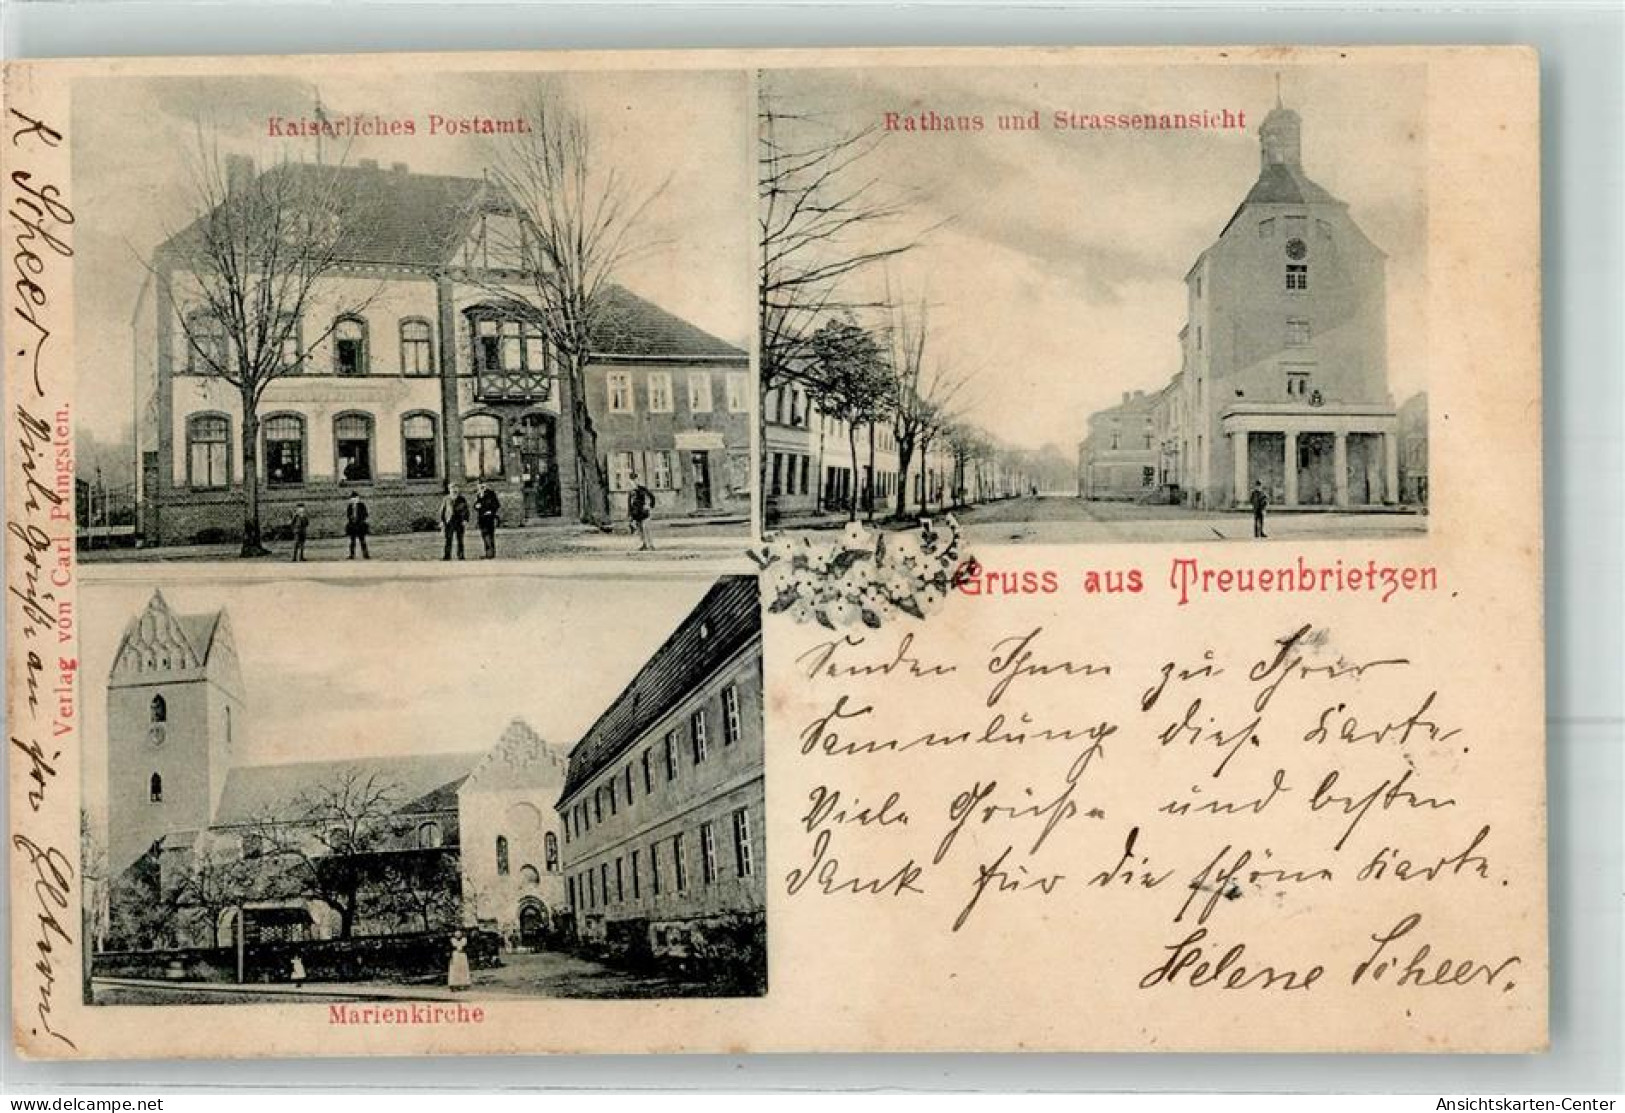 Kaiserliches Postamt.
Rathaus und Strassenansicht
Gruss aus Treuenbrietzen
Marienkirche
Verlag von Carl Pfingsten.
Senden Ihnen zu Ihrer
Sammlung diese Karte.
Viele Grüße und besten
Dank für die schöne Karte.
Helene Scheer.
K Scheer. Viele Grüße an ihre Eltern!
Ansichtskarten-Center
delcampe.net